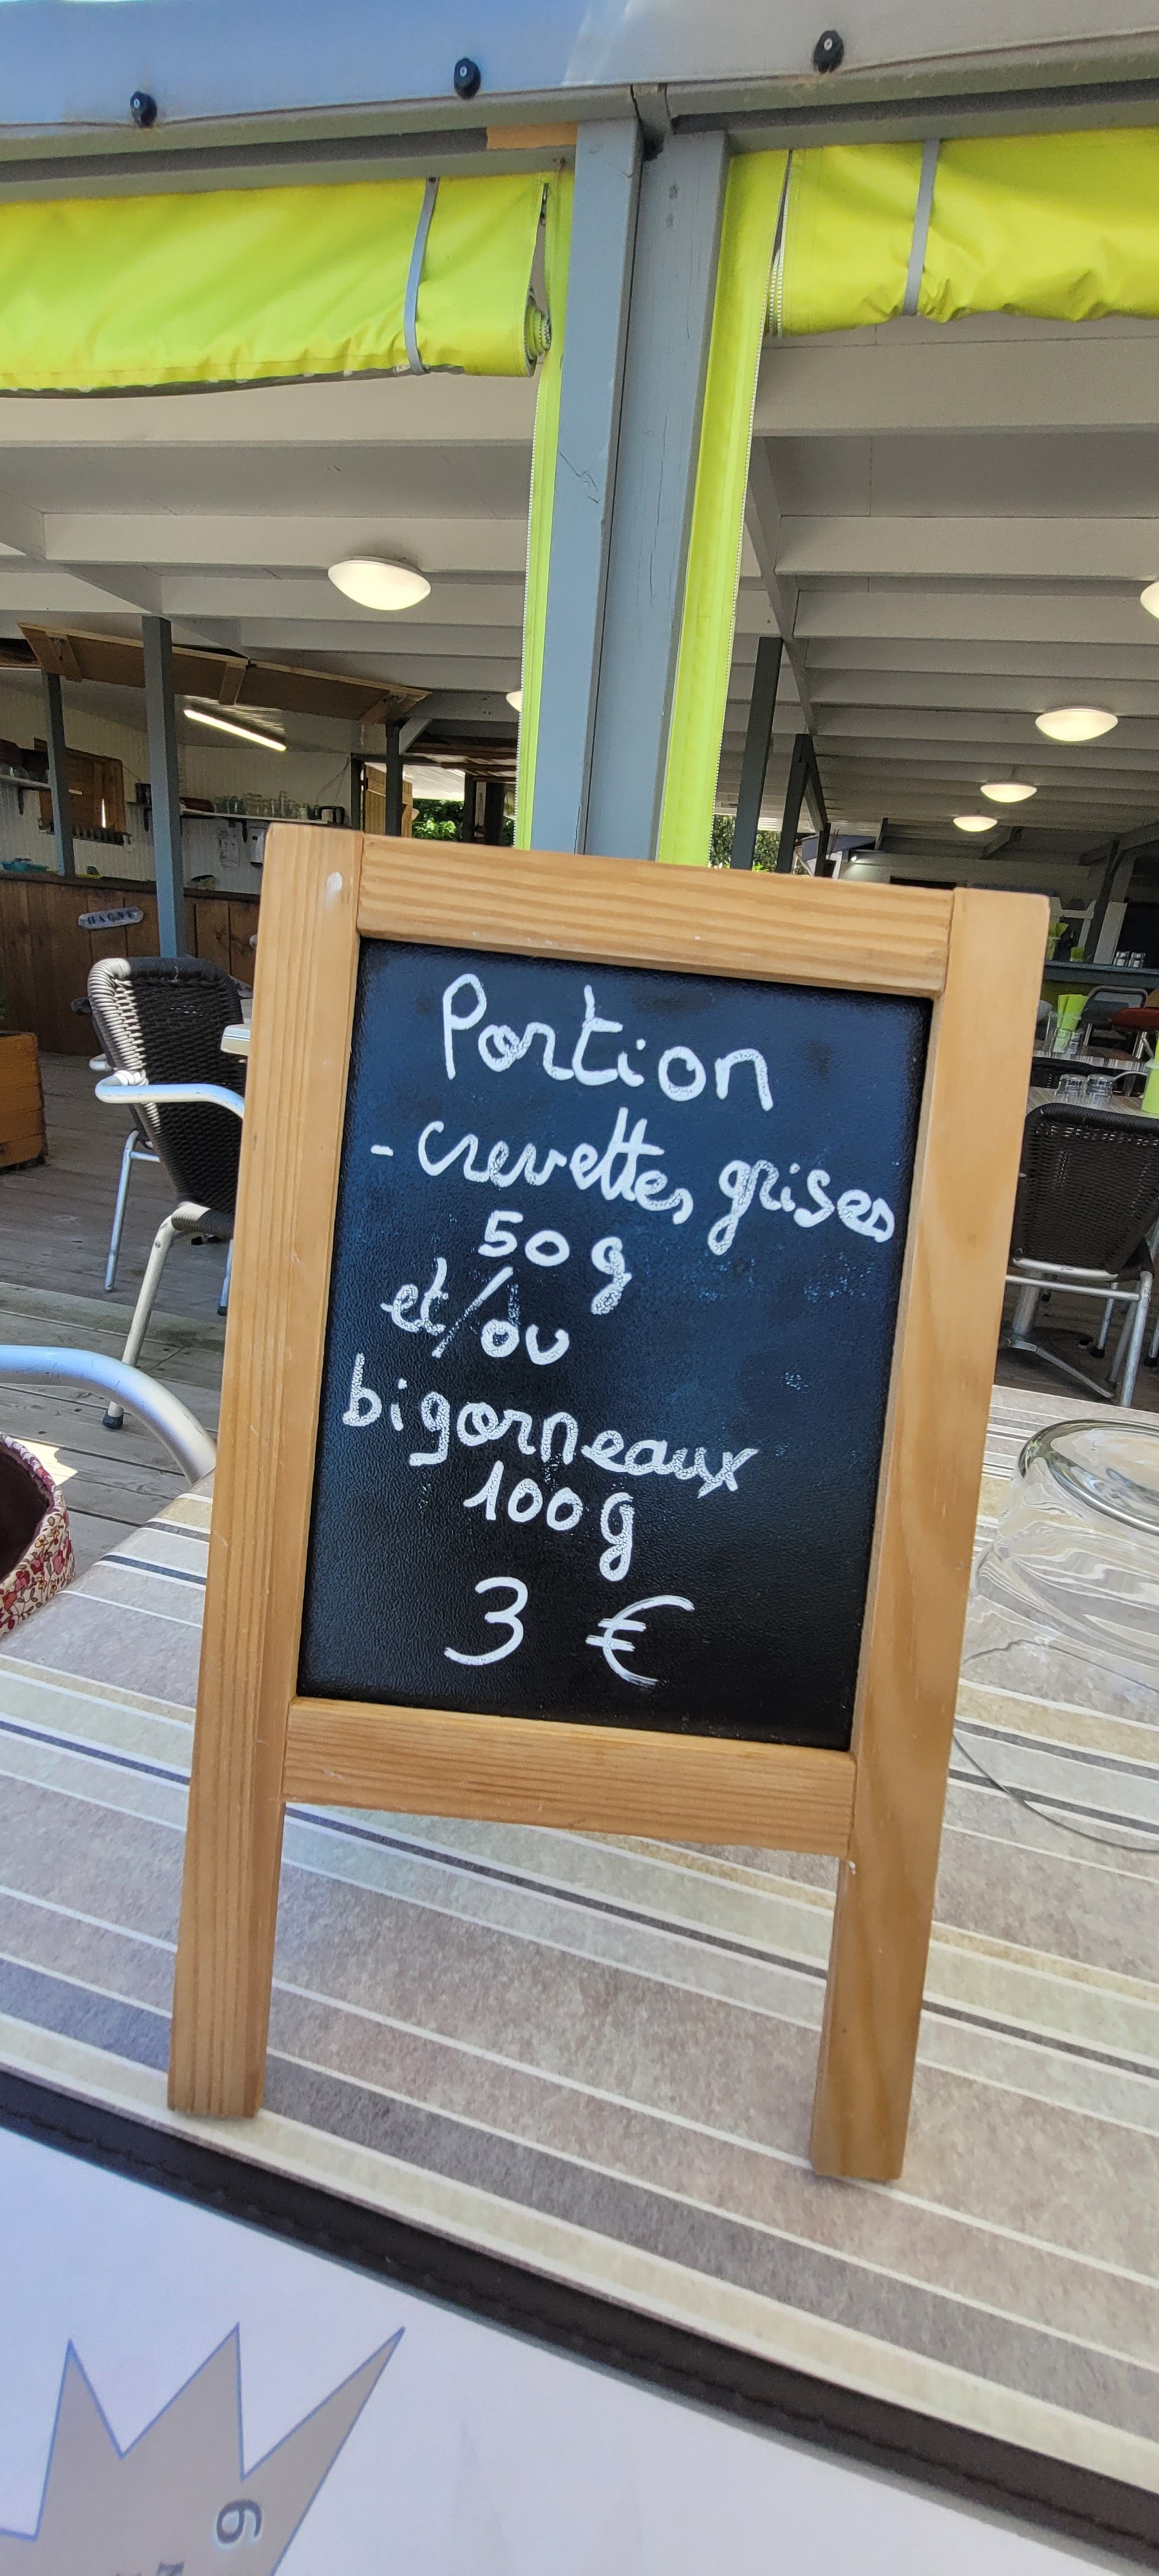 Portion
- crevettes grises
50 g
et/ou
bigorneaux
100 g
3 €
6